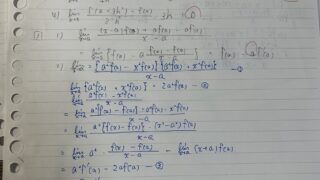 4) lim x→a {f(x+3h²) - f(x)} / 2h 3h
[3] 1) lim x→a (x-a)f(x) + af(x) - af(a) / x-a
= lim x→a {f(x) + a f(x)-f(a) / x-a} = f(a) + af'(a)
2) lim x→a = {a²f(x) - x²f(a)}{a²f(x) + x²f(a)} / x-a —①
lim x→a {a²f(x) + x²f(a)} = 2a²f(a) —②
lim x→a a²f(x) - x²f(a) / x-a
= lim x→a a²f(x) - a²f(a) + a²f(a) - x²f(a) / x-a
= lim x→a a²{f(x) - f(a)} - (x²-a²)f(a) / x-a
= lim x→a a² · f(x) - f(a) / x-a - lim x→a (x+a)f(a)
= a²f'(a) - 2af(a) —③